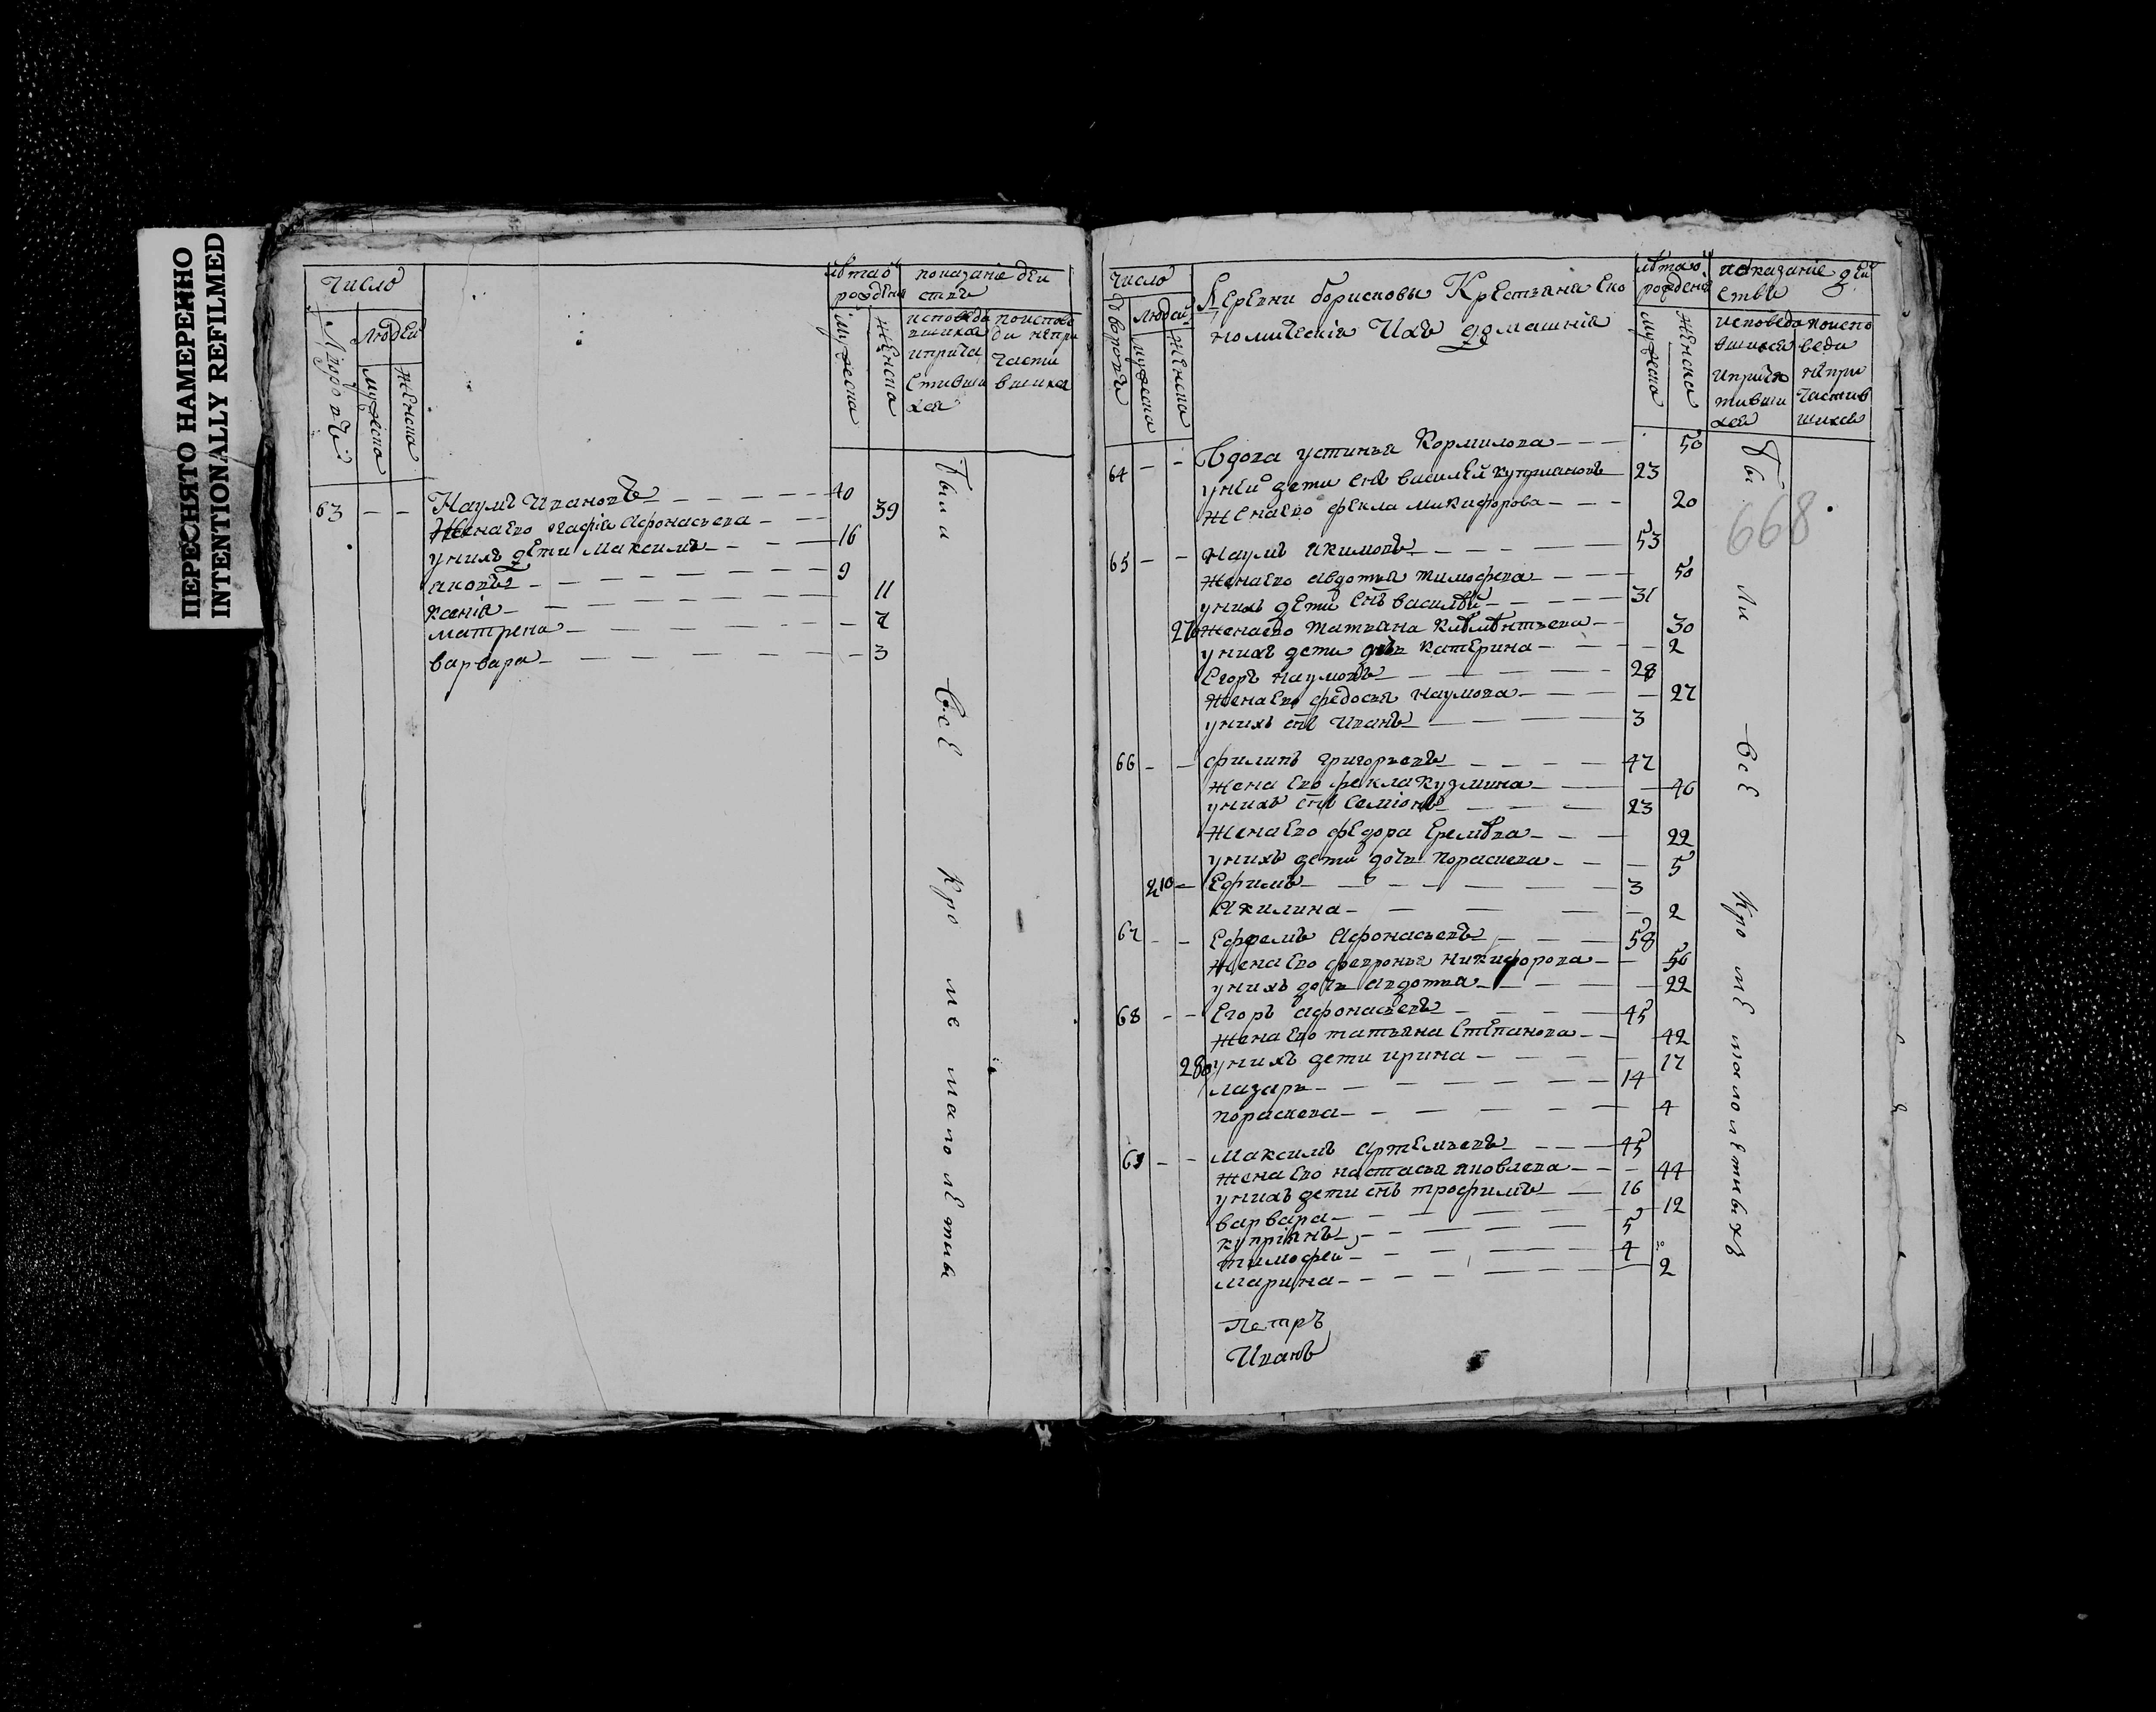 ПЕРЕСНЯТО НАМЕРЕННО
INTENTIONALLY REFILMED
Число
людей
мужеска
женска
лѣта ѿ рожденія
мужеска
женска
показаніе дѣйствъ
исповѣдавшихся и причастившихся
по исповѣди не причастившихся
63 - - Наумъ Ивановъ 40
Жена Ево Агафія Афонасьева 39
у нихъ дѣти Максимъ 16
яковъ 9
ксенія 11
матрена 7
варвара 3
были
всѣ
кроме малолѣтны
Число
дворовъ
людей
мужеска
женска
Деревни борисковы Крестьяна Еко
номическія Ихъ домашнія
лѣта ѿ рожденія
мужеска
женска
показаніе дѣйствъ
668
64 - - Вдова устинья Кормилова 50
у ней дети снъ василей куприановъ 23
жена Ево фекла микифорова 20
65 - - Наумъ Якимовъ 53
жена Ево Авдотья тимофева 50
у нихъ дети снъ василѣй 31
270 жена ево татьяна клѣмѣнтьева 30
у нихъ дети дочь катерина 2
Егоръ наумовъ 28
жена Ево федосья наумова 27
у нихъ снъ Иванъ 3
66 - - филипъ григорьевъ 47
жена Ево фекла кузмина 46
у нихъ снъ Семіонъ 23
жена Ево федора Еремѣва 22
у нихъ дети дочь порасковa 5
210 - Ефимъ 3
Акилина 2
67 - - Ефремъ Афонасьевъ 58
жена Ево февронья никифорова 56
у нихъ дочь Авдотья 22
68 - - Егоръ Афонасьевъ 45
жена Ево татьяна Степанова 42
280 у нихъ дети ирина 17
лазарь 14
пораскева 4
69 - - максимъ Артемьевъ 45
жена Ево настасья яковлева 44
у нихъ дети снъ трофимъ 16
варвара 12
купріянъ 5
тимофей 4
марина 2
Петръ
Иванъ
были
всѣ
кроме малолетныхъ